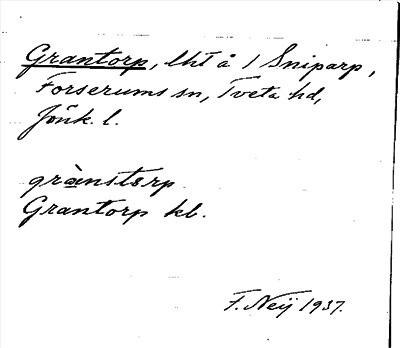 Grantorp, lht å 1 Sniparp,
Forserums sn, Tveta hd,
Jönk. l.
grànstɵrp
Grantorp kb.
F. Neij 1937.